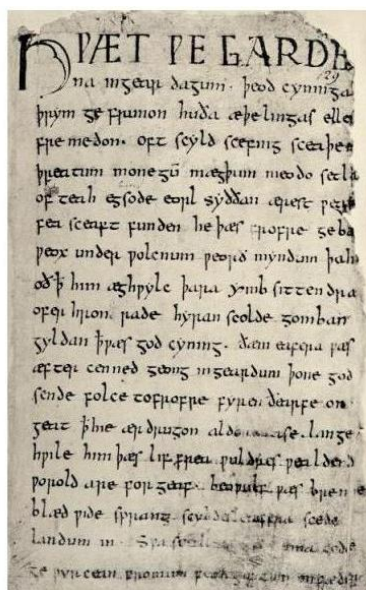 HǷÆT ǷE GARDE
129
na ingear dagum. þeod cyninga
þrym ge frunon huða æþelingas elle
fremedon. oft scyld scefing sceaþe
þreatum monegū mægþum meodo setla
of teah egsode eorl syððan ærest ƿear
fea sceaft funden he þæs frofre geba
ƿeox under ƿolcnum ƿeorð myndum þah
oð ꝥ him æghƿylc þara ymb sittendra
ofer hron rade hyran scolde gomban
gyldan ꝥ ƿæs god cyning. ðæm eafera ƿæs
æfter cenned geong ingeardum þone god
sende folce tofrofre fyren ðearfe on
geat ꝥ hie ær drugon lange
hƿile him þæs lif frea ƿuldres ƿealdend
ƿorold are for geaf. beoƿulf ƿæs breme
blæd ƿide sprang scyldes eafera scede
landum in. Sƿa guma gode
ge ƿyrcean fromum